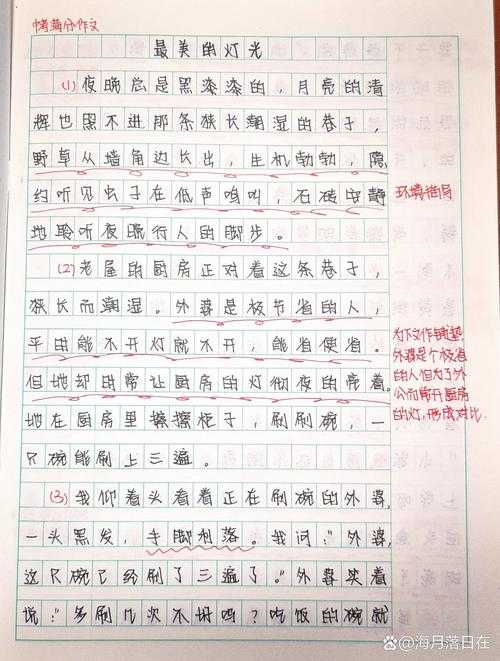 中考满分作文
最美的灯光
(1)夜晚总是黑漆漆的,月亮的清
辉也照不进那条狭长潮湿的巷子,
野草从墙角边长出,生机勃勃,隐
约听见虫子在低声鸣叫,石砖安静
地聆听夜晚行人的脚步。
环境描写
(2)老屋的厨房正对着这条巷子,
狭长而潮湿。外婆是极节省的人,
平日能不开灯就不开,能省便省。
但她却时常让厨房的灯彻夜的亮着。
她在厨房里擦擦柜子,刷刷碗,一
只碗能刷上三遍。
为下文作铺垫
外婆是个极省
的人但为了外
公而常开厨房
的灯,形成对比
(3)我仰着头看着正在刷碗的外婆,
一头黑发,手脚利落。我问:"外婆,
这只碗已经刷了三遍了。"外婆笑着
说:"多刷几次不好吗?吃饭的碗就
海月落日在